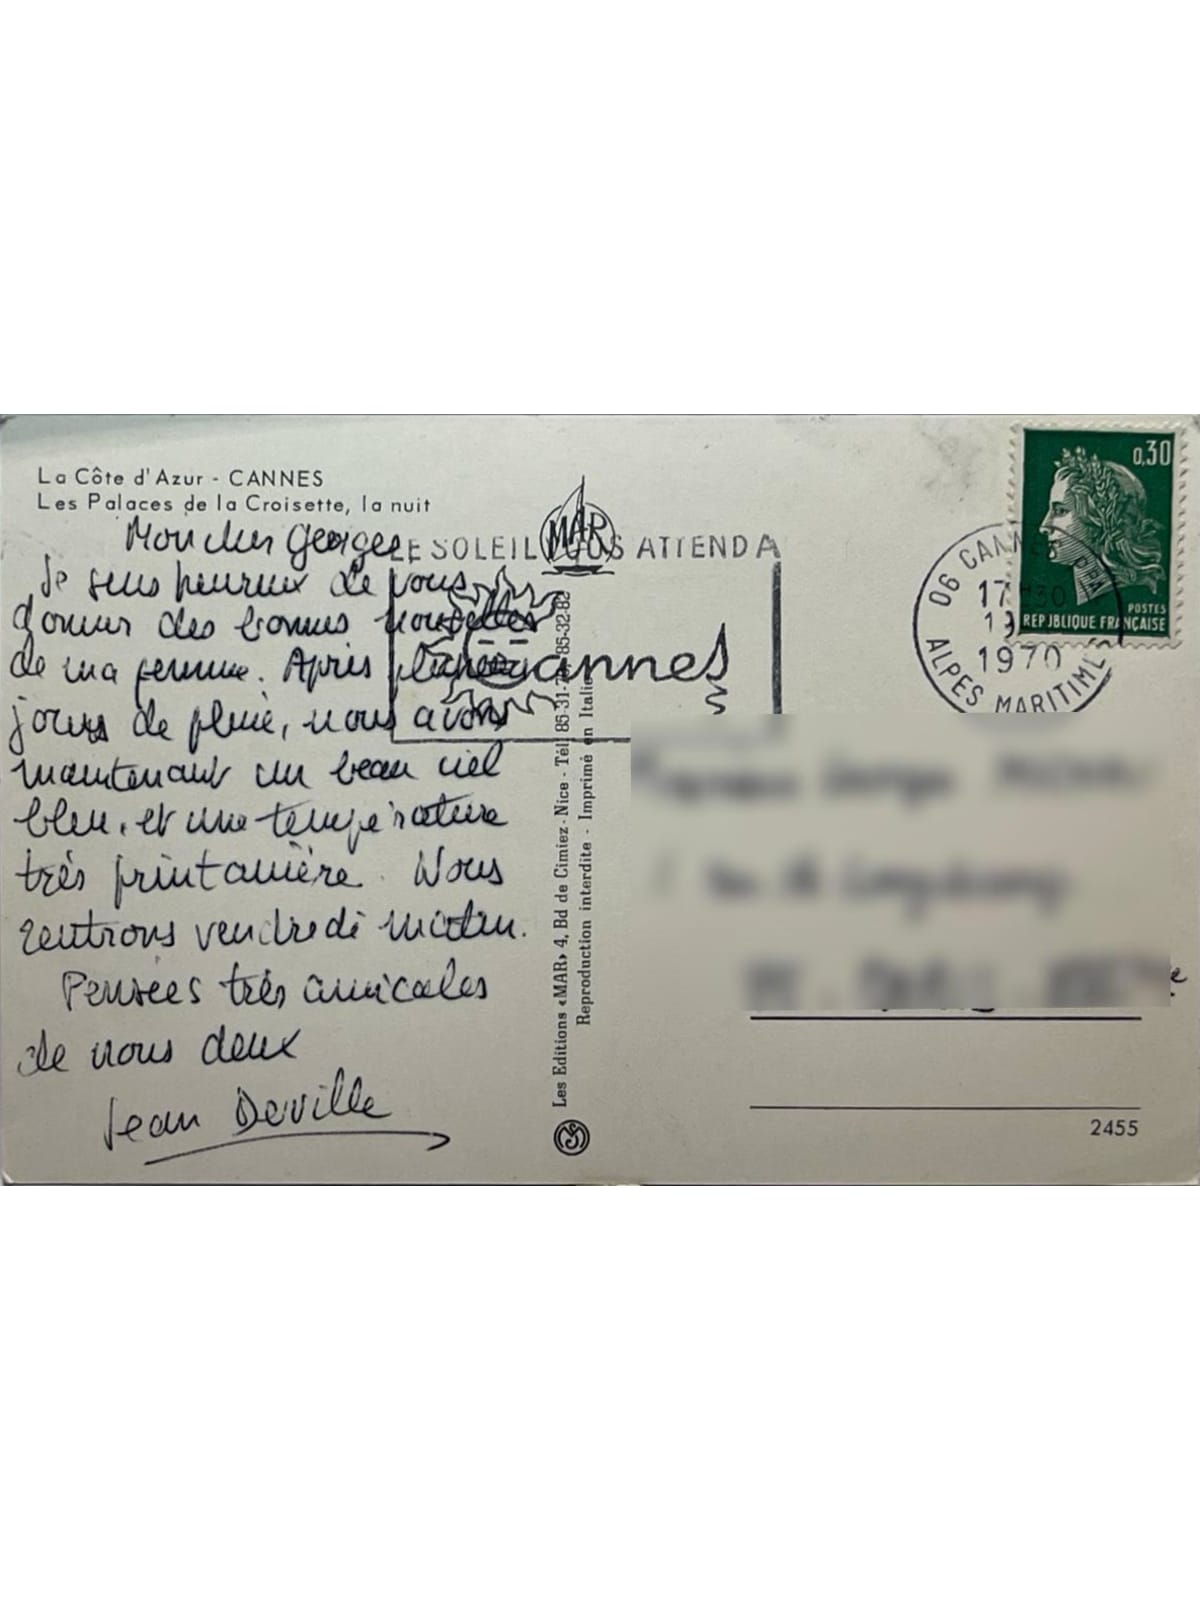 La Côte d'Azur - CANNES
Les Palaces de la Croisette, la nuit
Mon cher Georges
Je suis heureux de vous
donner des bonnes nouvelles
de ma femme. Après plusieurs
jours de pluie, nous avons
maintenant un beau ciel
bleu, et une température
très printanière. Nous
rentrons vendredi matin.
Pensées très amicales
de nous deux
Jean Deville
MAR
LE SOLEIL VOUS ATTEND A
Cannes
Les Editions «MAR» 4, Bd de Cimiez - Nice - Tél. 85-32-82
Reproduction interdite - Imprimé en Italie
0,30
POSTES
REPUBLIQUE FRANÇAISE
06 CANNES
17 H30
1970
ALPES MARITIMES
2455